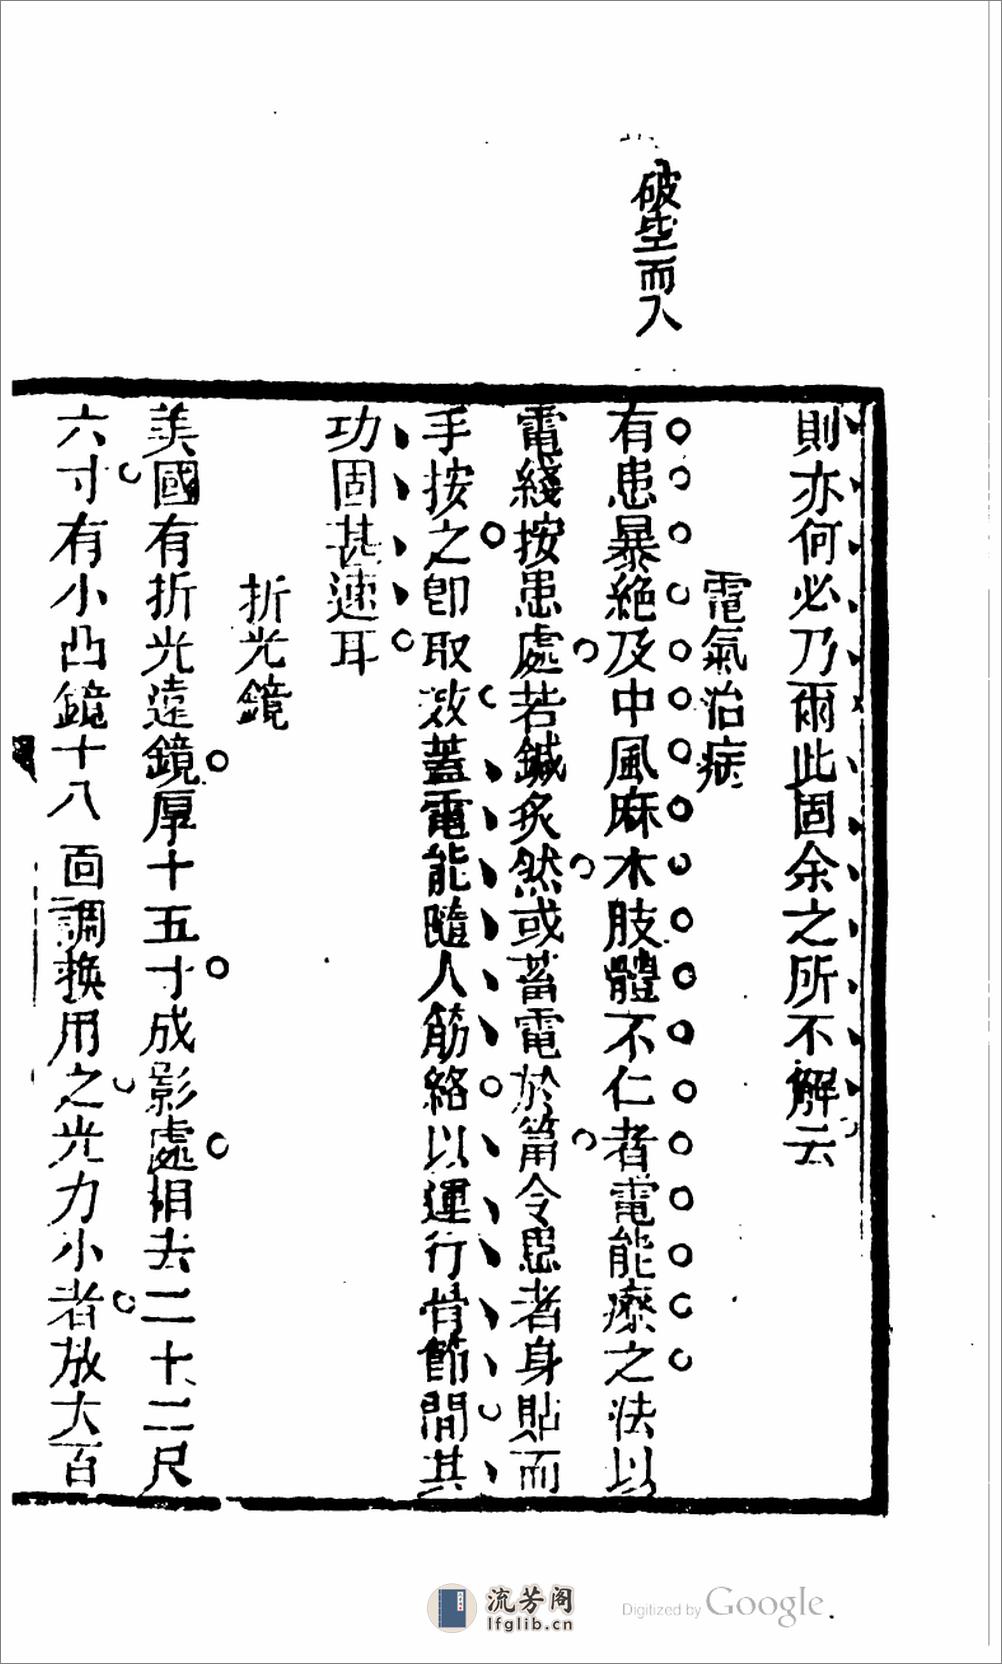 破空而入
則亦何必乃爾此固余之所不解云
電氣治病
有患暴絶及中風麻木肢體不仁者電能療之法以
電綫按患處若鍼炙然或蓄電於筩令患者身貼而
手按之卽取效蓋電能隨人筋絡以運行骨節間其
功固甚速耳
折光鏡
美國有折光遠鏡厚十五寸成影處相去二十二尺
六寸有小凸鏡十八面調換用之光力小者放大百
流芳阁
lfglib.cn
Digitized by Google